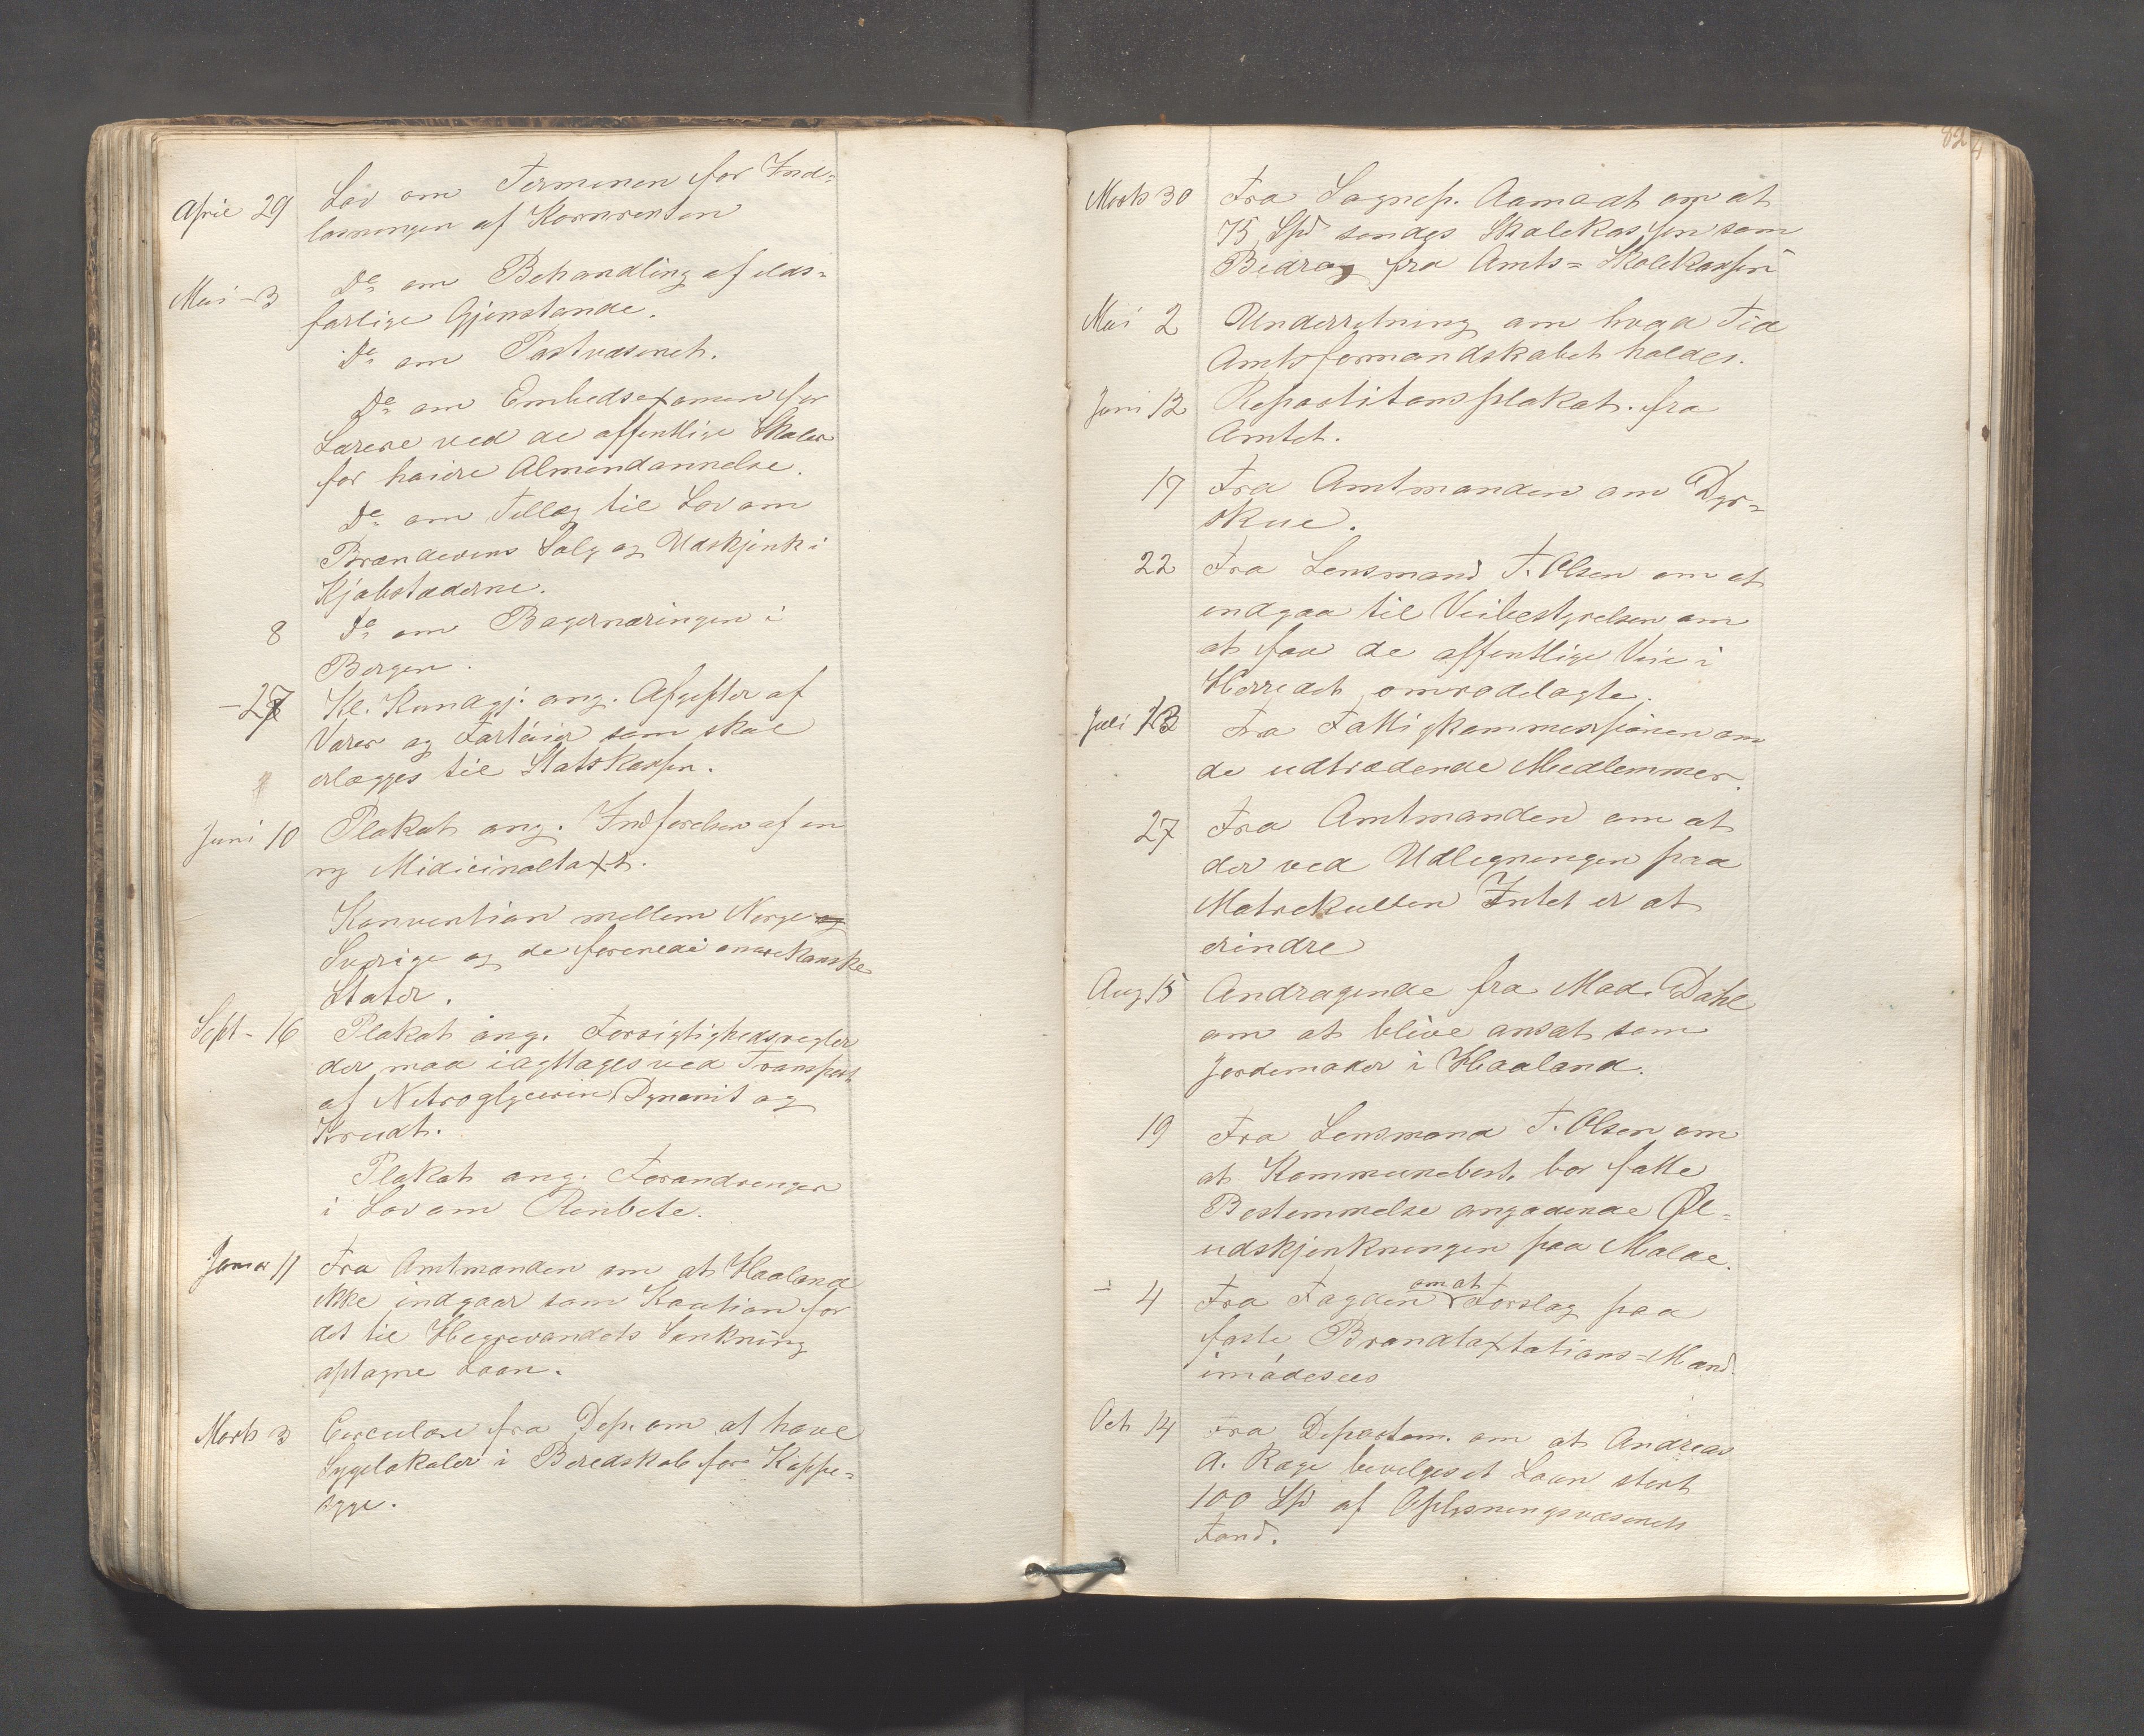 April 29 Lov om Terminen for Ind=
løsningen af Kornrenten
Mai - 3 Do om Behandling af ilds=
farlige Gjenstande.
Do om Postvæsenet.
Do om Embedsexamen for
Lærere ved de offentlige Skoler
for høiere Almendannelse.
Do om Tillæg til Lov om
Brændevins Salg og Udskjenk i
Kjøbstæderne.
8 Do om Bagernæringen i
Bergen.
- 27 Kl. Kundgj. ang. Afgifter af
Varer og Fartøier som skal
erlægges til Statskassen.
Juni 10 Plakat ang. Indførelsen af en
ny Midicinaltaxt.
Konvention mellem Norge og
Sverige og de forenede amerikanske
Stater.
Sept - 16 Plakat ang. Forsigtighedsregler
der maa iagttages ved Transport
af Nitroglycerin Dynamit og
Krudt.
Plakat ang. Forandringer
i Lov om Renbete.
Januar 11 Fra Amtmanden om at Haaland
ikke indgaar som Kaution for
det til Hegrevandets Senkning
optagne Laan.
Marts 3 Circulære fra Dep. om at have
Sygelokaler i Beredskab for Koppe=
syge.
82
Marts 30 Fra Sognep. Aamodt om at
75 Spd sendes Skolekassen som
Bidrag fra Amts=Skolekassen
Mai 2 Underretning om hvad Tid
Amtsformandskabet holdes.
Juni 12 Repartitionsplakat. fra
Amtet.
17 Fra Amtmanden om Dyr=
skue.
22 Fra Lensmand T. Olsen om at
indgaa til Veibestyrelsen om
at faa de offentlige Veie i
Herredet omrodelagte.
Juli 13 Fra Fattigkommissionen om
de udtrædende Medlemmer.
27 Fra Amtmanden om at
der ved Udlegningen paa
Matrekullen Intet er at
erindre
Aug 15 Andragende fra Mad. Dahl
om at blive ansat som
Jordemoder i Haaland.
19 Fra Lensmand T. Olsen om
at Kommunebest. bør fatte
Bestemmelse angaaende Øl=
udskjenkningen paa Malde.
- 4 Fra Fogden om at Forslag paa
faste Brandtaxtations=Mænd
imødesees
Oct 14 Fra Departem. om at Andreas
A. Rage bevilges et Laan stort
100 Spd af Oplysningsvæsenets
Fond.